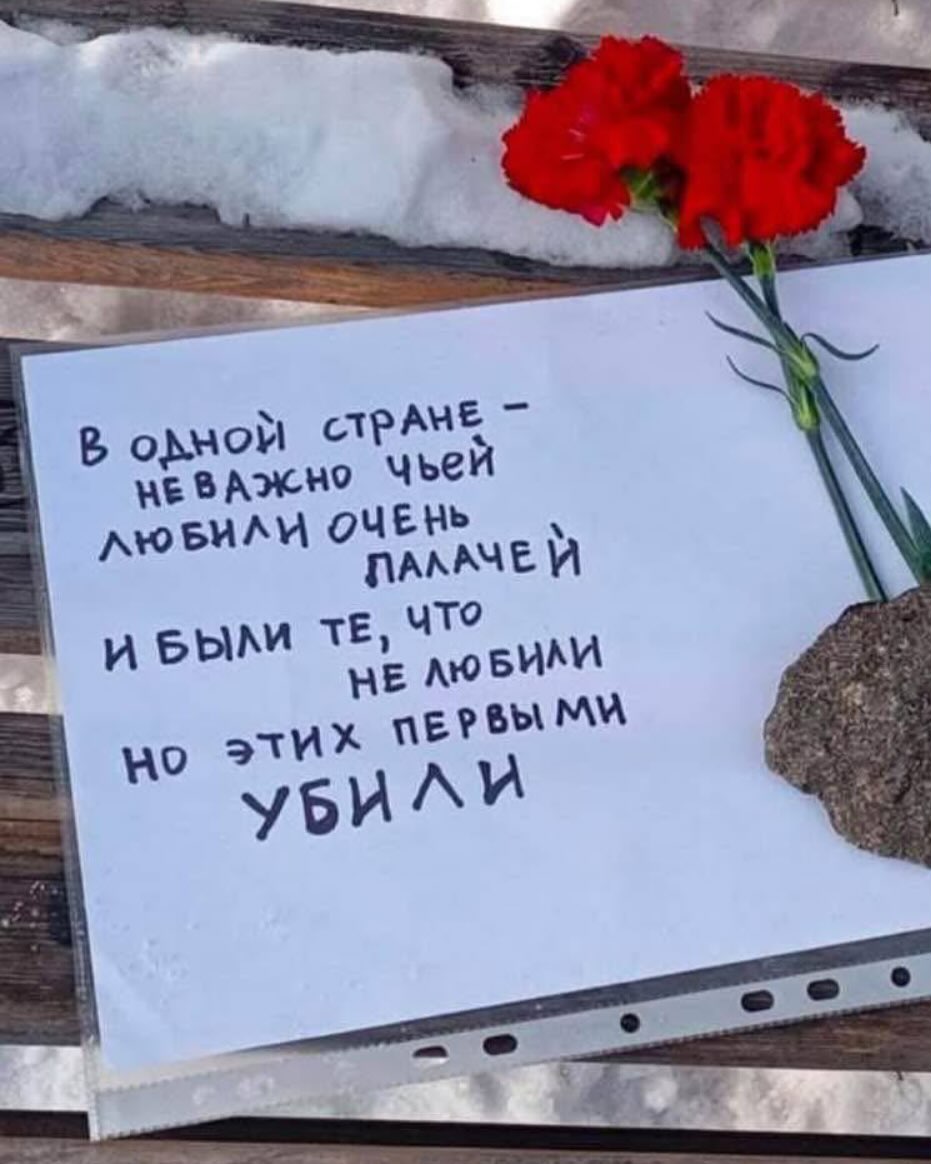 В ОДНОЙ СТРАНЕ –
НЕ ВАЖНО ЧЬЕЙ
ЛЮБИЛИ ОЧЕНЬ
ПАЛАЧЕЙ
И БЫЛИ ТЕ, ЧТО
НЕ ЛЮБИЛИ
НО ЭТИХ ПЕРВЫМИ
УБИЛИ